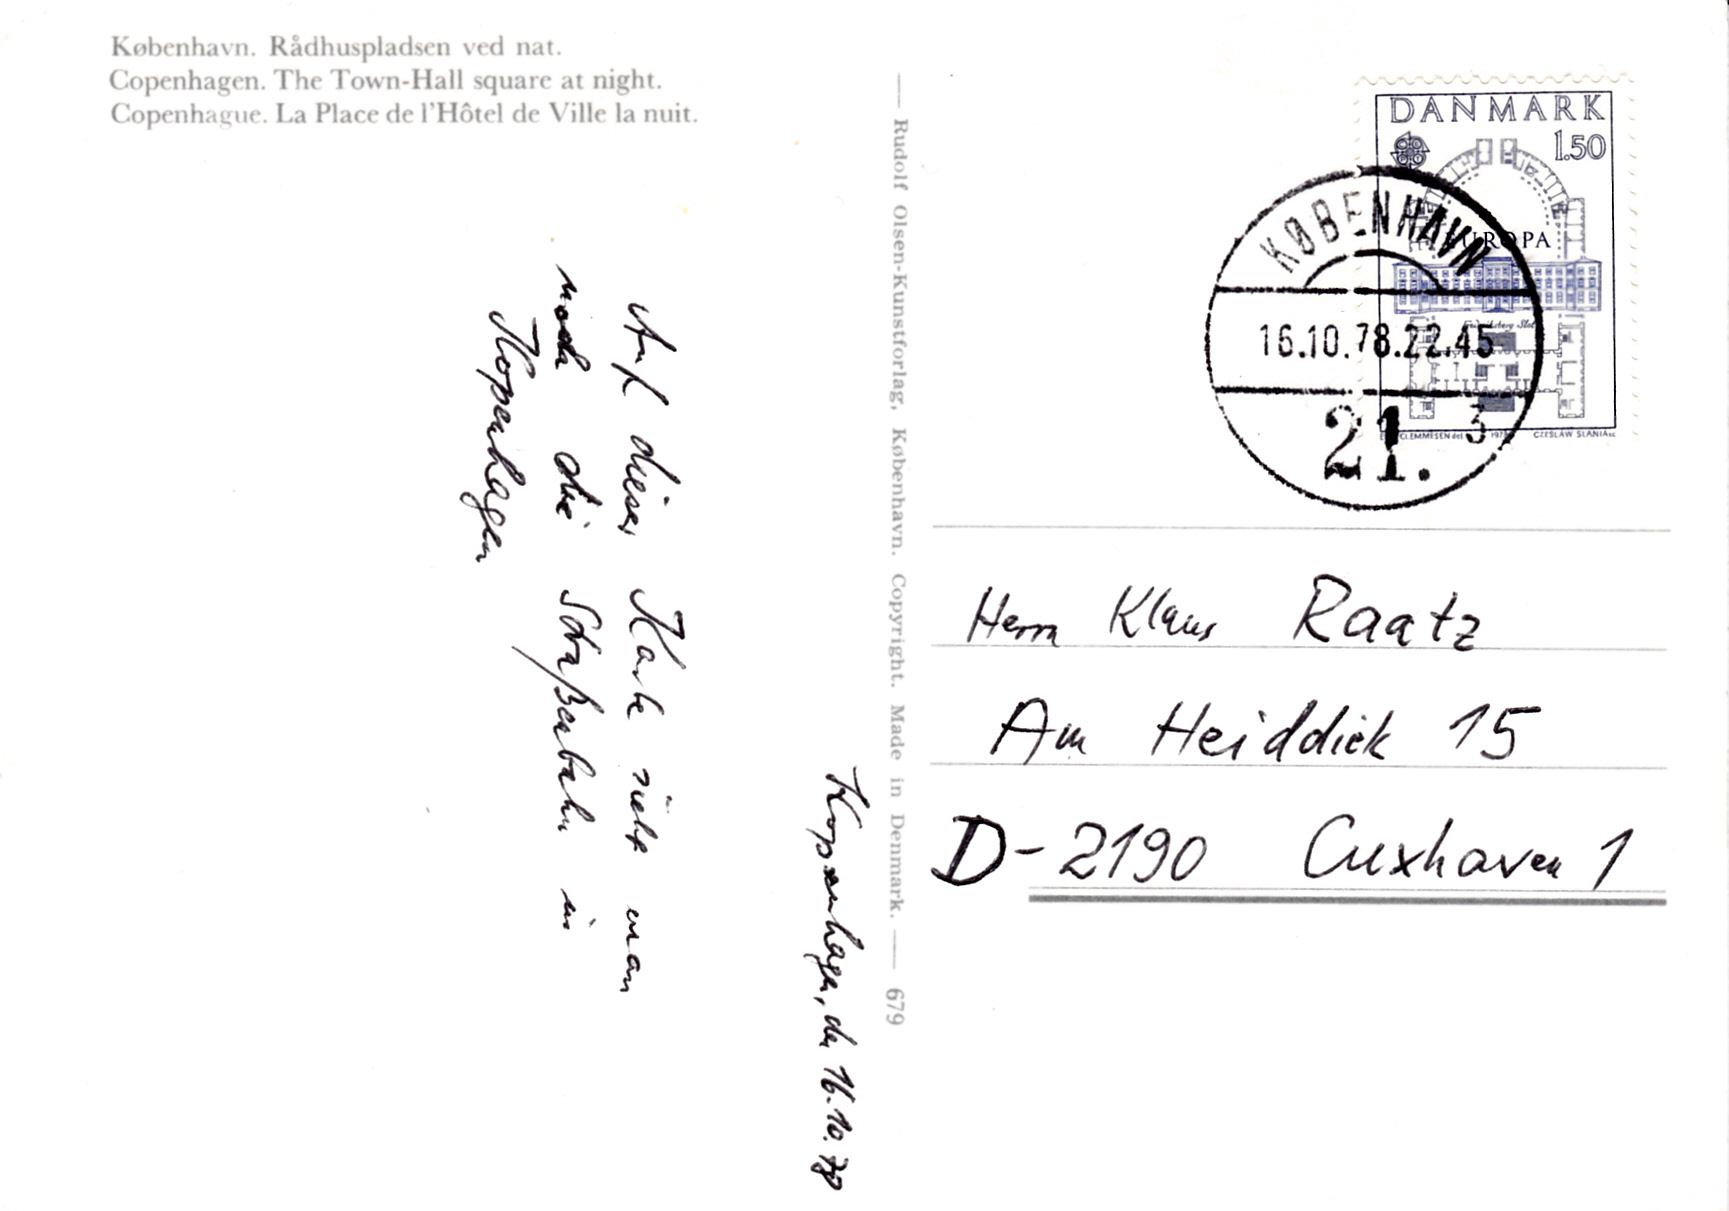 København. Rådhuspladsen ved nat.
Copenhagen. The Town-Hall square at night.
Copenhague. La Place de l'Hôtel de Ville la nuit.
Kopenhagen, den 16.10.78
Auf dieser Karte sieht man
noch die Straßenbahn in
Kopenhagen
— Rudolf Olsen-Kunstforlag, København. Copyright. Made in Denmark. — 679
DANMARK
1.50
EUROPA
Frederiksberg Slot
CLEMMESEN del. 1978 CZESLAW SLANIA sc.
KØBENHAVN
16.10.78.22.45
21. 3
Herrn Klaus Raatz
Am Heiddiek 15
D-2190 Cuxhaven 1